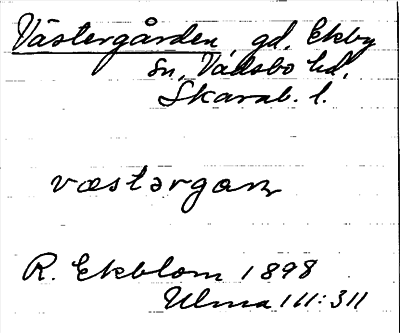 Västergården, gd, Ekby
sn, Vadsbo hd,
Skarab. l.
væstərgaɳ
R. Ekblom 1898
Ulma 111:311